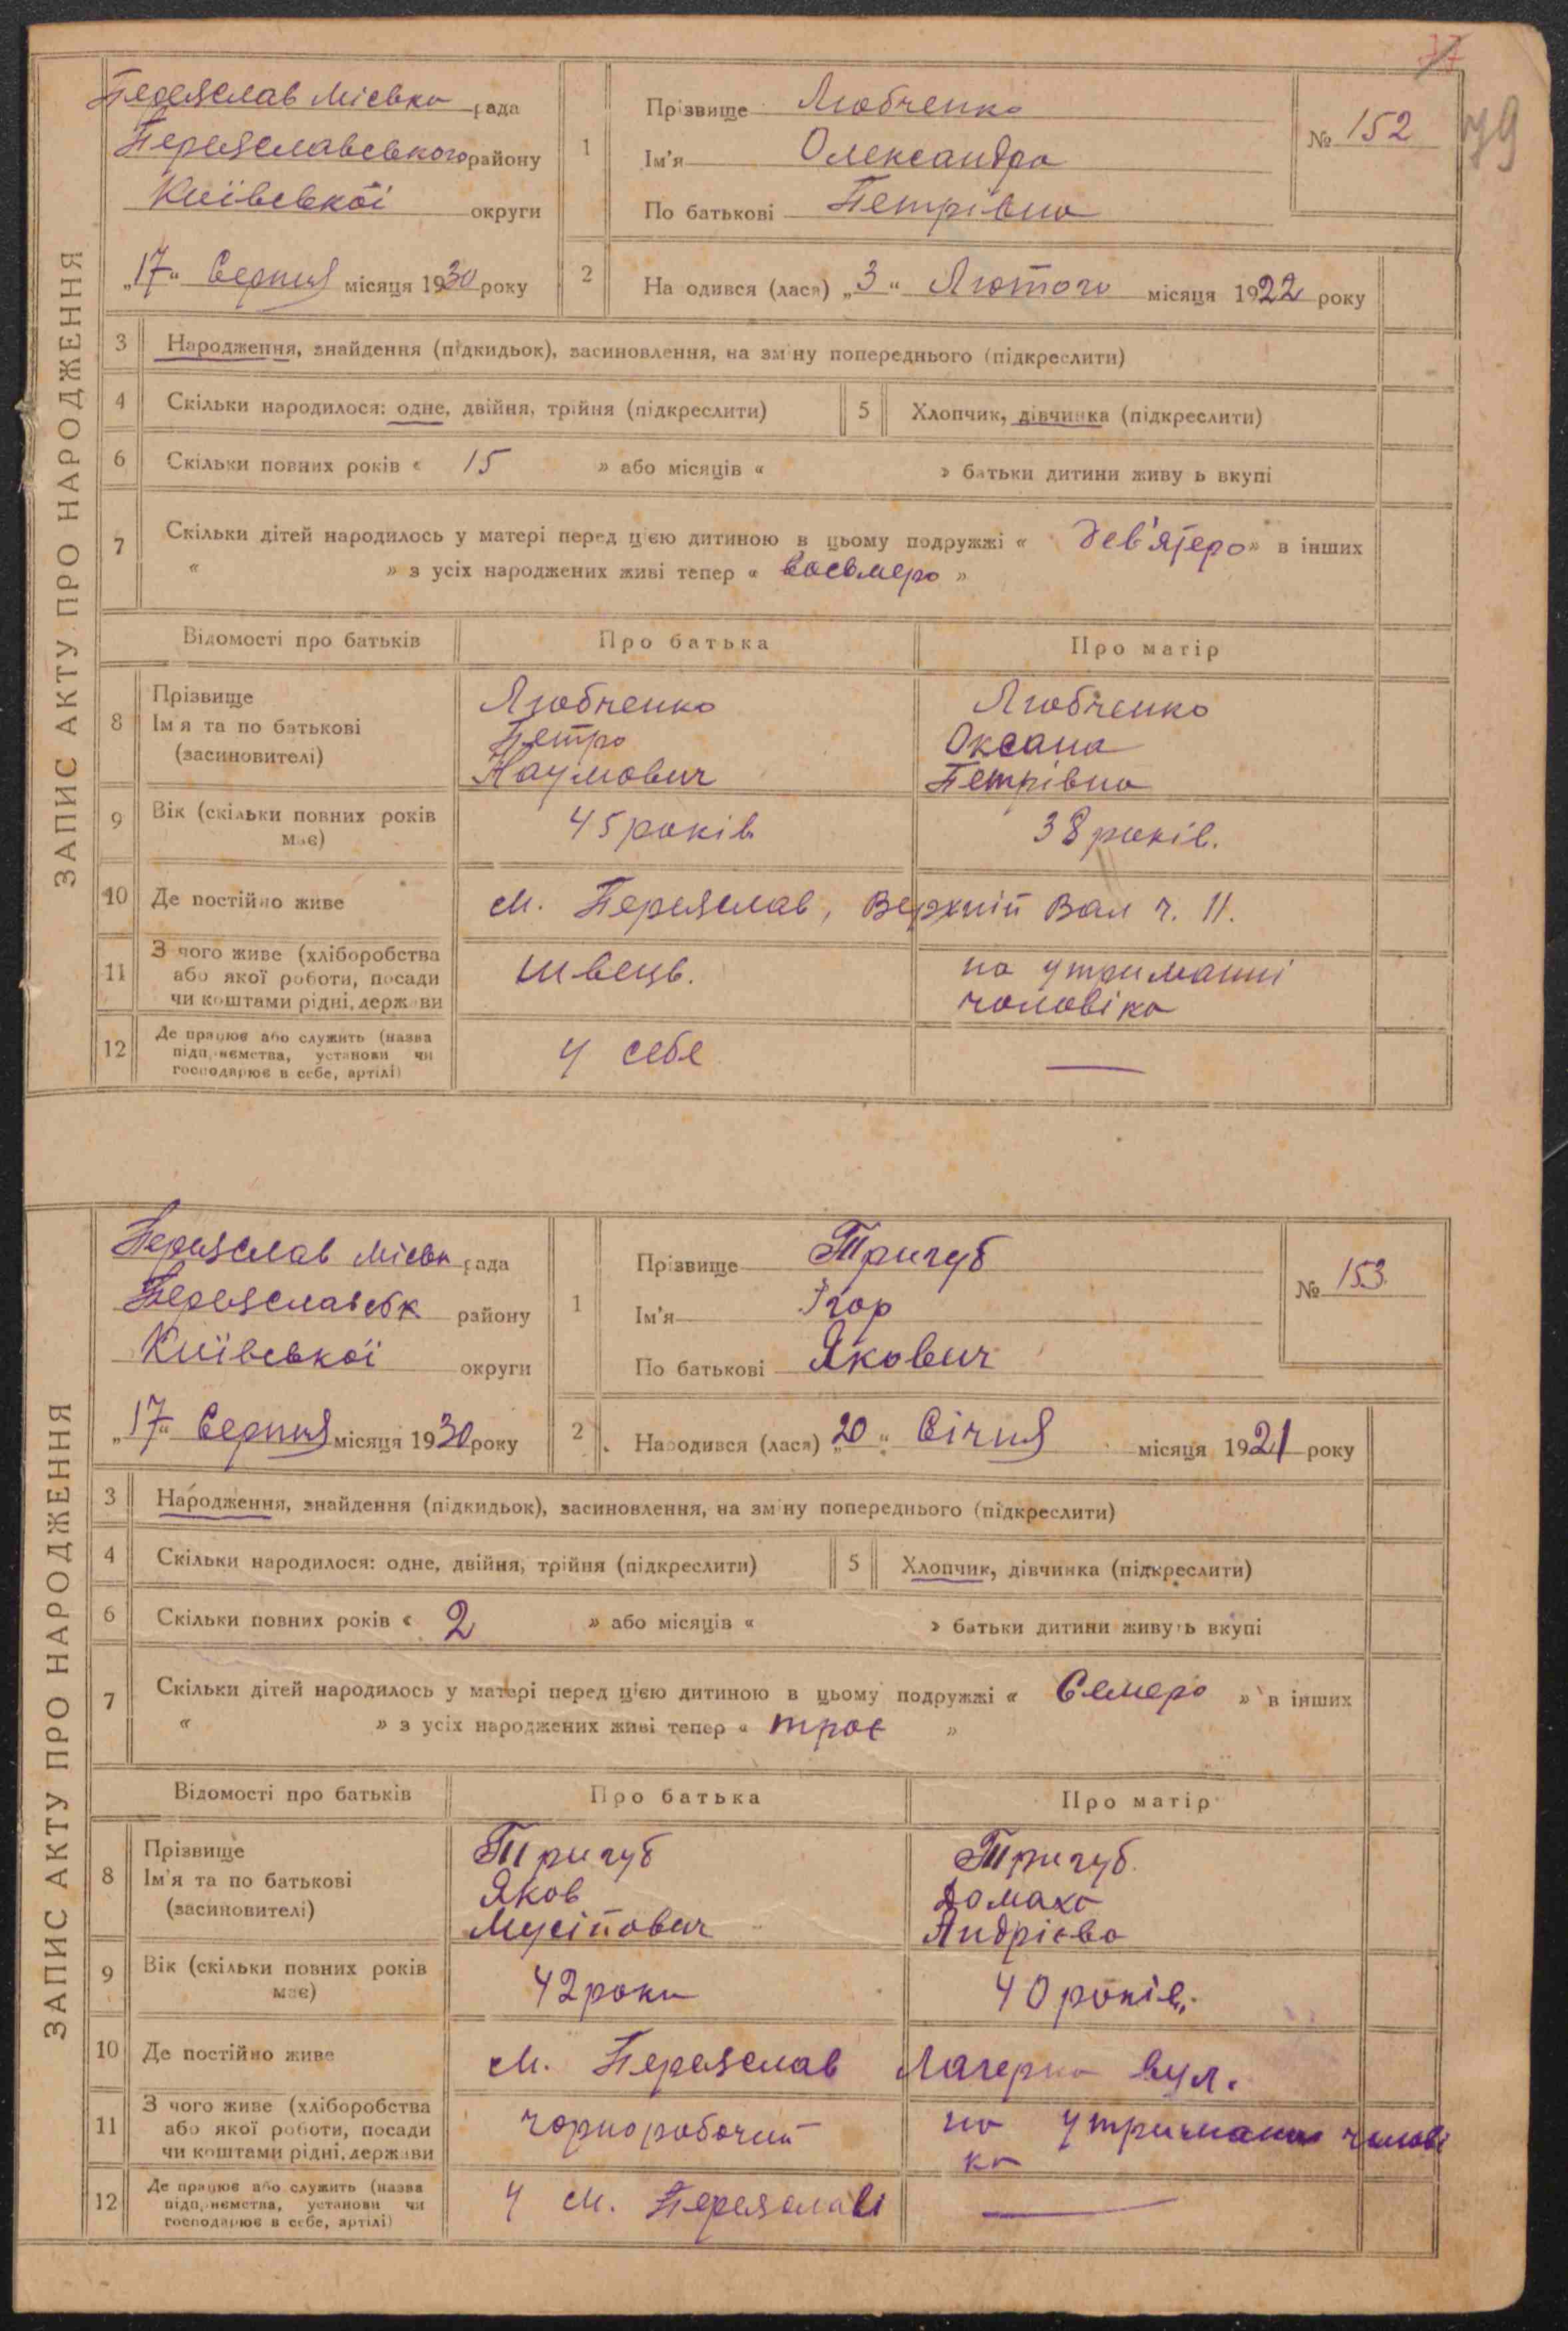 77
79
ЗАПИС АКТУ ПРО НАРОДЖЕННЯ
Переяслав Міська рада
Переяславського району
Київської округи
„17“ Серпня місяця 1930 року
1
Прізвище Любченко
Ім'я Олександра
По батькові Петрівна
№ 152
2 На одився (лася) „3“ Лютого місяця 1922 року
3 Народження, знайдення (підкидьок), засиновлення, на зміну попереднього (підкреслити)
4 Скільки народилося: одне, двійня, трійня (підкреслити) 5 Хлопчик, дівчинка (підкреслити)
6 Скільки повних років « 15 » або місяців « » батьки дитини живу ь вкупі
7 Скільки дітей народилось у матері перед цією дитиною в цьому подружжі « дев'ятеро » в інших
« » з усіх народжених живі тепер « восьмеро »
Відомості про батьків Про батька Про матір
8 Прізвище Любченко Любченко
Ім'я та по батькові Петро Оксана
(засиновителі) Наумович Петрівна
9 Вік (скільки повних років має) 45 років 38 років.
10 Де постійно живе м. Переяслав, Верхній Вал ч. 11.
11 З чого живе (хліборобства швець. на утриманні
або якої роботи, посади чоловіка
чи коштами рідні, держави
12 Де працює або служить (назва
підприємства, установи чи у себе —
господарює в себе, артілі)
ЗАПИС АКТУ ПРО НАРОДЖЕННЯ
Переяслав Міськ рада
Переяславськ району
Київської округи
„17“ Серпня місяця 1930 року
1
Прізвище Тригуб
Ім'я Ігор
По батькові Якович
№ 153
2 Народився (лася) „20“ Січня місяця 1921 року
3 Народження, знайдення (підкидьок), засиновлення, на зміну попереднього (підкреслити)
4 Скільки народилося: одне, двійня, трійня (підкреслити) 5 Хлопчик, дівчинка (підкреслити)
6 Скільки повних років « 2 » або місяців « » батьки дитини живуть вкупі
7 Скільки дітей народилось у матері перед цією дитиною в цьому подружжі « Семеро » в інших
« » з усіх народжених живі тепер « троє »
Відомості про батьків Про батька Про матір
8 Прізвище Тригуб Тригуб.
Ім'я та по батькові Яков Домаха
(засиновителі) Мусійович Андрієва
9 Вік (скільки повних років має) 42 роки 40 років.
10 Де постійно живе м. Переяслав Лагерна вул.
11 З чого живе (хліборобства чорноробочий на утриманні чолові
або якої роботи, посади ка
чи коштами рідні, держави
12 Де працює або служить (назва
підприємства, установи чи у м. Переяславі —
господарює в себе, артілі)